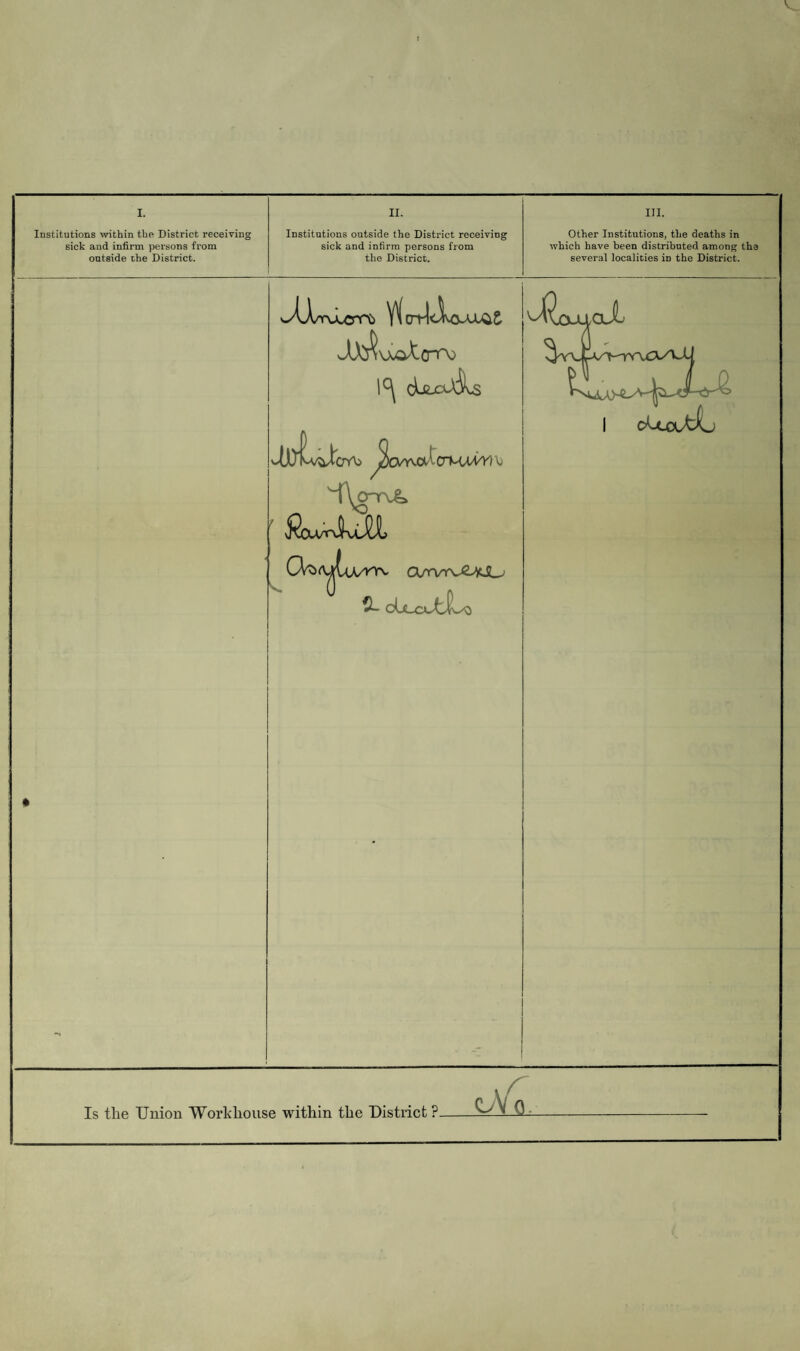 I.
Institutions within the District receiving
sick and infirm persons from
outside the District.
II.
Institutions outside the District receiving
sick and infirm persons from
the District.
III.
Other Institutions, the deaths in
which have been distributed among the
several localities in the District.
Union Workhouse
Whiston
19 deaths
Whiston Sanatorium
Home
Rainhill
Asylum annexe
2 deaths
Royal
Infirmary
Liverpool
1 death
Is the Union Workhouse within the District? No.